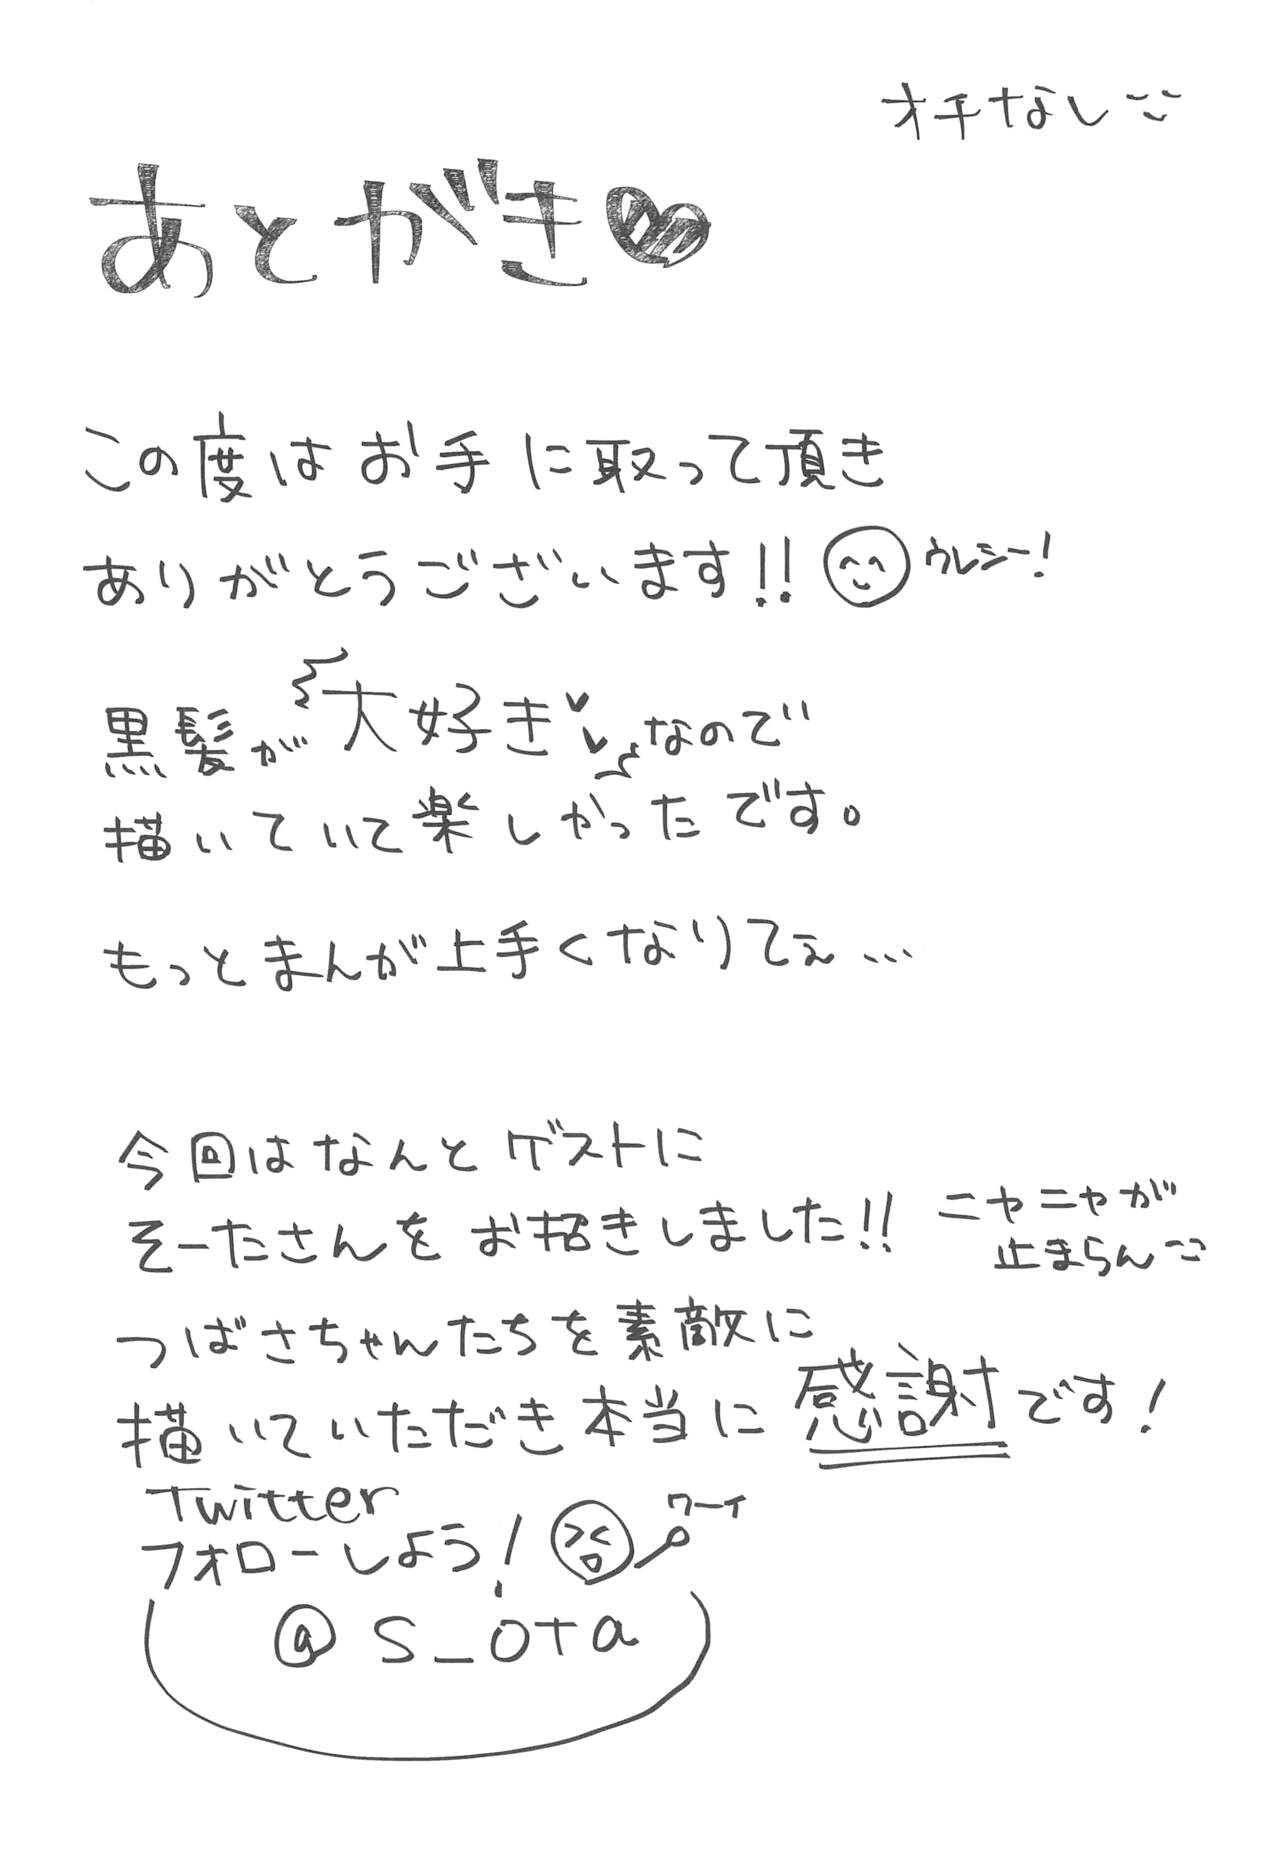 オチなし
あとがき
この度はお手に取って頂き
ありがとうございます!! ウレシー!
黒髪が大好きなので
描いていて楽しかったです。
もっとまんが上手くなりてぇ…
今回はなんとゲストに
そーたさんをお招きしました!!
ニヤニヤが
止まらん
つばさちゃんたちを素敵に
描いていただき本当に感謝です!
Twitter
フォローしよう! ワーイ
@s_ota